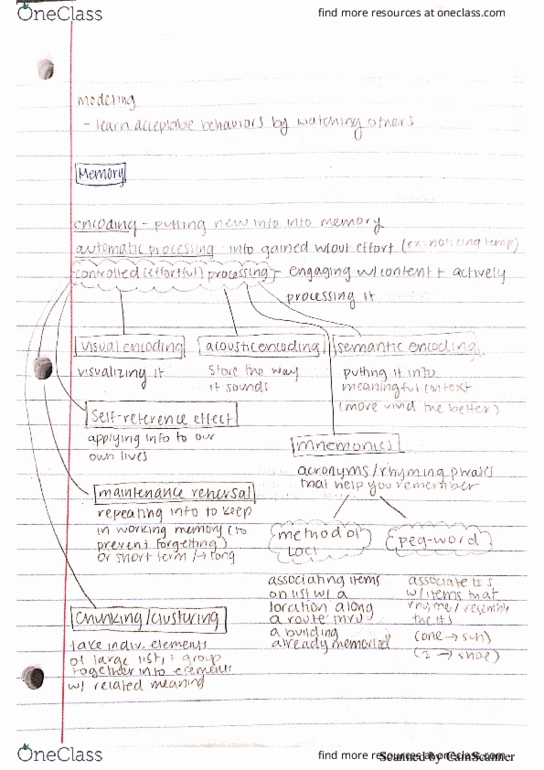 OneClass
find more resources at oneclass.com
modeling
- learn acceptable behaviors by watching others
Memory
encoding - putting new info into memory
automatic processing - info gained w/out effort (ex: noticing temp)
controlled (effortful) processing - engaging w/ content + actively
processing it
visual encoding
visualizing it
acoustic encoding
store the way
it sounds
semantic encoding
putting it into
meaningful context
(more vivid the better)
self-reference effect
applying info to our
own lives
mnemonics
acronyms/rhyming phrases
that help you remember
maintenance rehersal
repeating info to keep
in working memory (to
prevent forgetting)
or short term / → long
method of
loci
associating items
on list w/ a
location along
a route thru
a building
already memorized
peg-word
associate #s
w/ items that
rhyme/resemble
the #s
(one → sun)
(2 → shoe)
Chunking/clustering
take indiv. elements
of large list, + group
together into elements
w/ related meaning
OneClass
find more resources at oneclass.com
Scanned by CamScanner